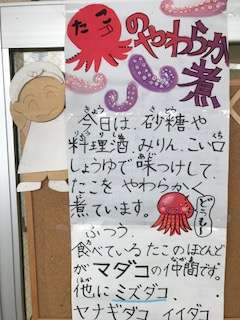 たこ
のやわらか
煮
今日は、砂糖や
料理酒、みりん、こい口
しょうゆで味つけして、
たこをやわらかく
煮ています。
どうも～
ふつう
食べているたこのほとんど
がマダコの仲間です。
他にミズダコ、
ヤナギダコ、イイダコ